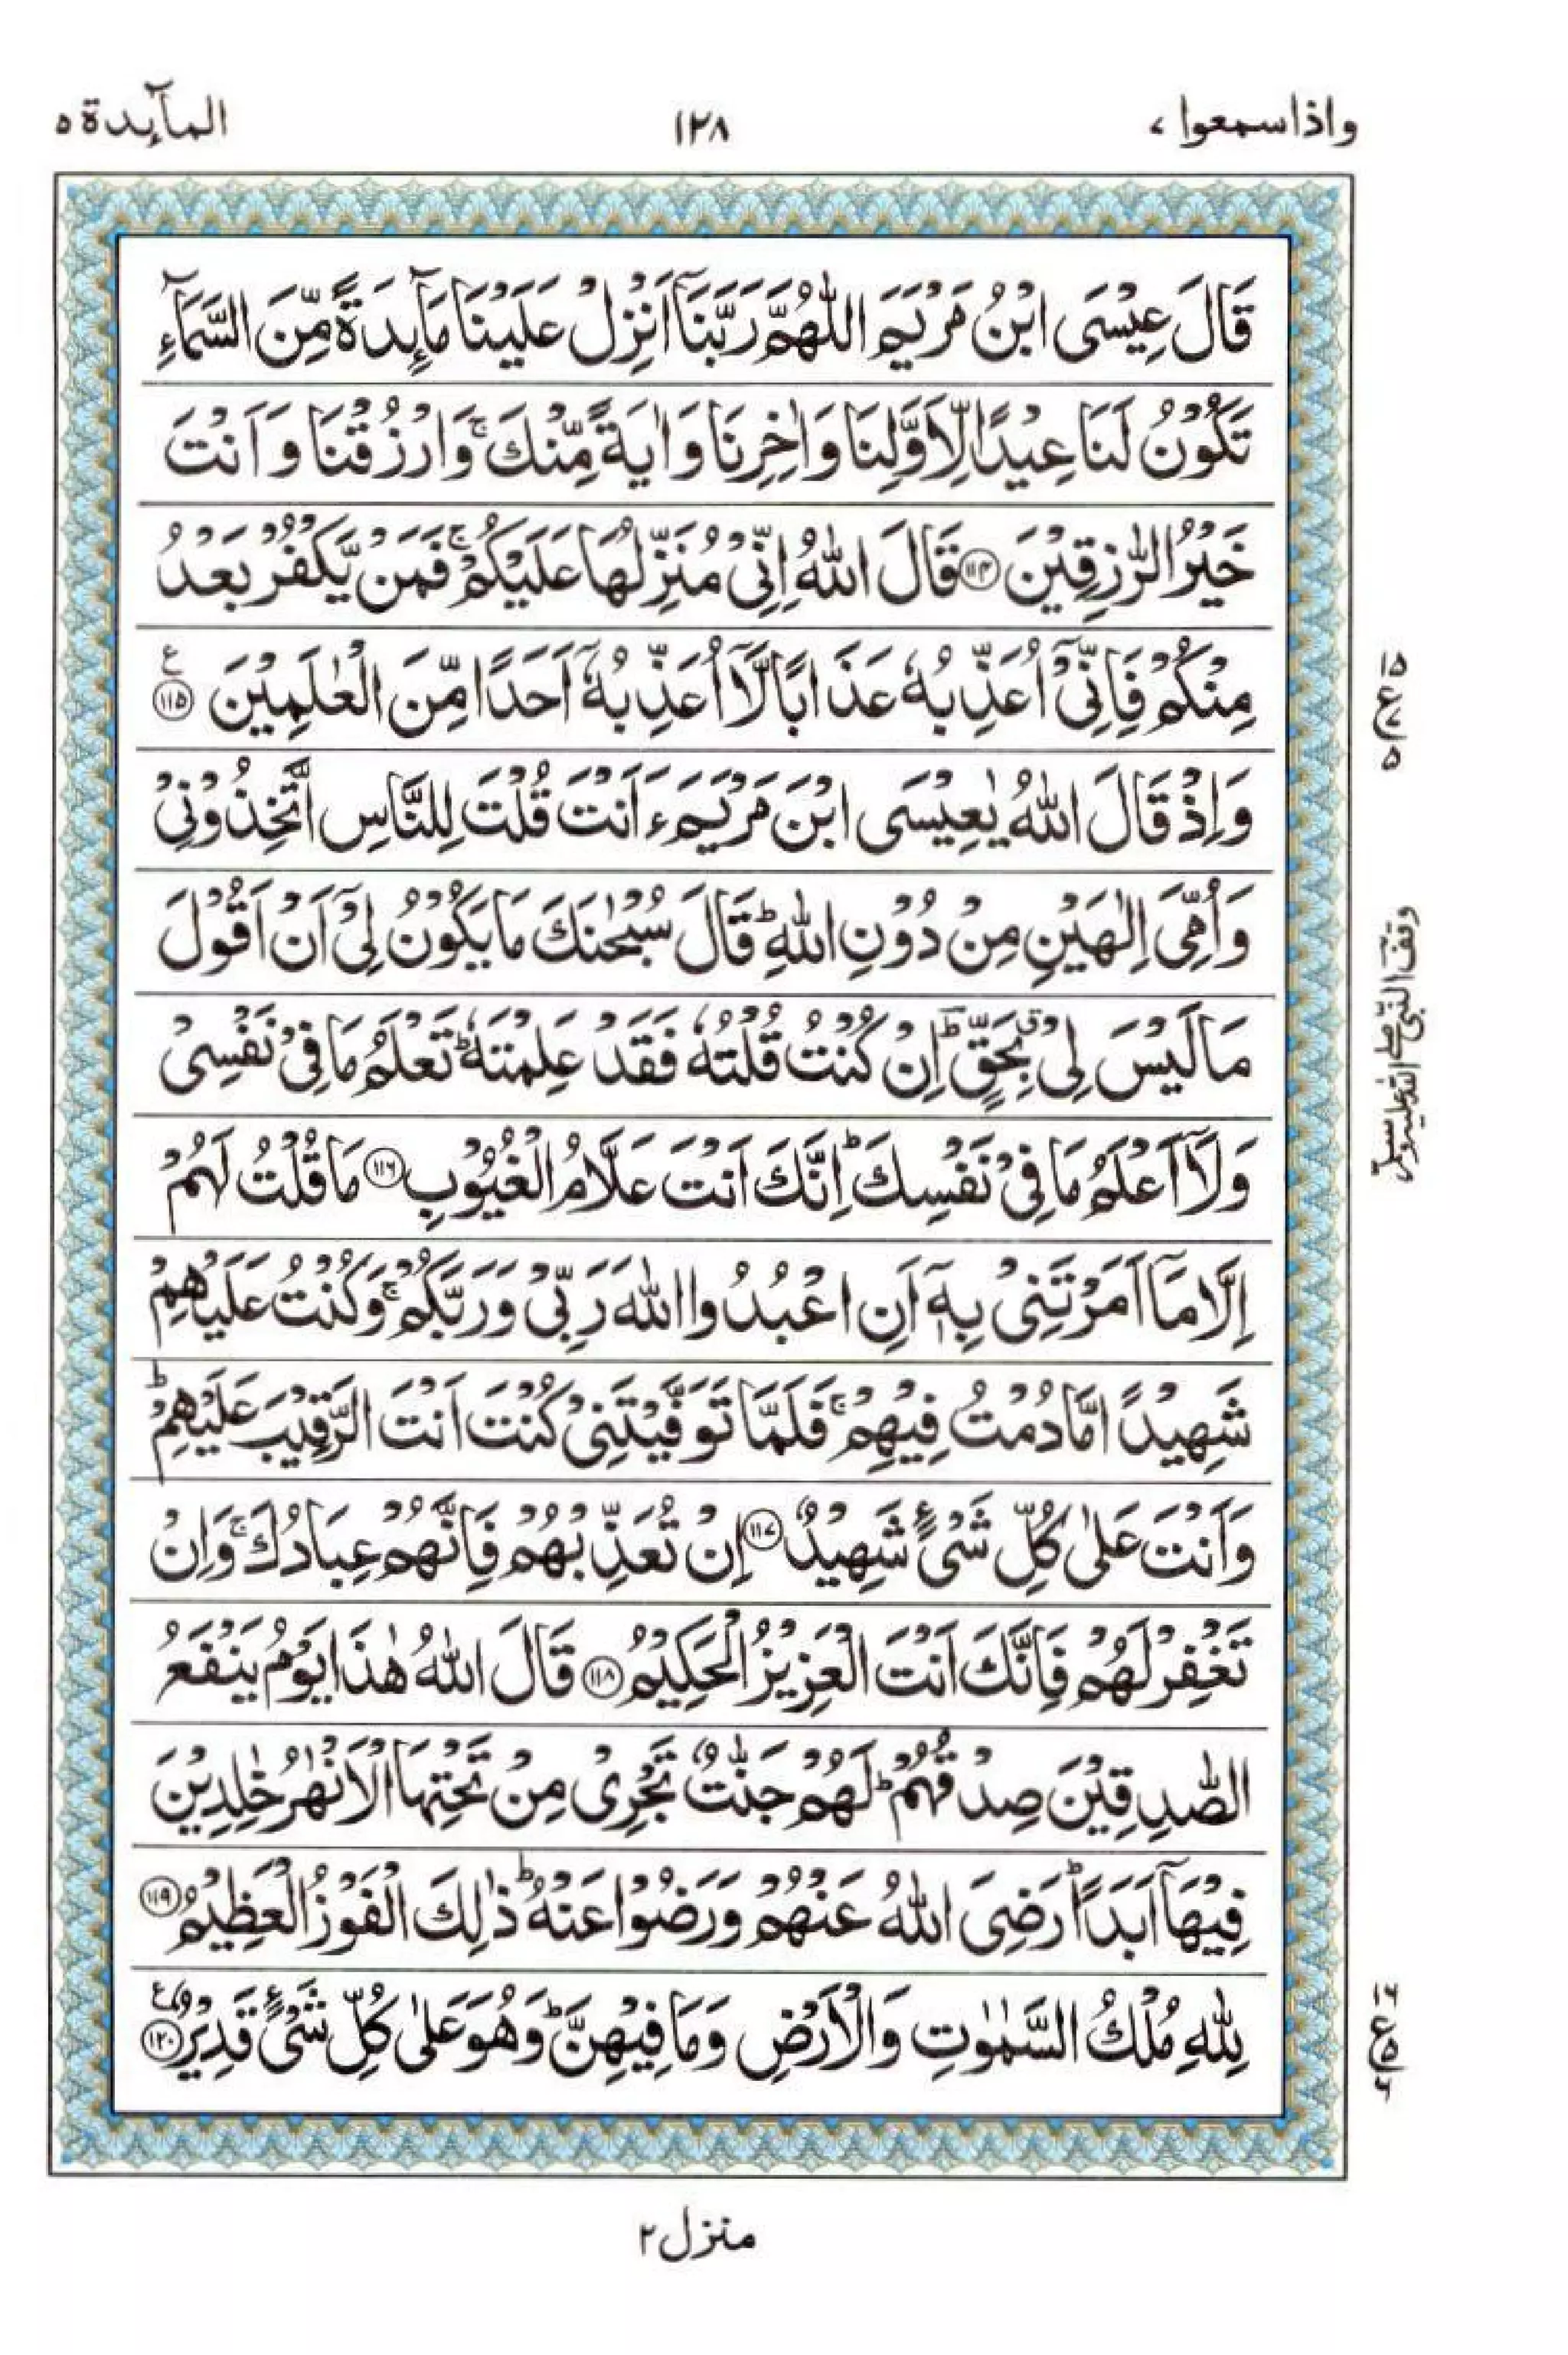 واذاسمعوا ٧
١٢٨
المآىِٕدة ٥
قَالَ عِيْسَى ابْنُ مَرْيَمَ اللّٰهُمَّ رَبَّنَاۤ اَنْزِلْ عَلَيْنَا مَآىِٕدَةً مِّنَ السَّمَآءِ
تَكُوْنُ لَنَا عِيْدًا لِّاَوَّلِنَا وَاٰخِرِنَا وَاٰيَةً مِّنْكَ ۚ وَارْزُقْنَا وَاَنْتَ
خَيْرُ الرّٰزِقِيْنَ ﴿١١٤﴾ قَالَ اللّٰهُ اِنِّىْ مُنَزِّلُهَا عَلَيْكُمْ ۚ فَمَنْ يَّكْفُرْ بَعْدُ
مِنْكُمْ فَاِنِّىْۤ اُعَذِّبُهٗ عَذَابًا لَّاۤ اُعَذِّبُهٗۤ اَحَدًا مِّنَ الْعٰلَمِيْنَ ﴿١١٥﴾ ع
١٥ ع ٧ ٥
وَاِذْ قَالَ اللّٰهُ يٰعِيْسَى ابْنَ مَرْيَمَ ءَاَنْتَ قُلْتَ لِلنَّاسِ اتَّخِذُوْنِىْ
وَاُمِّىَ اِلٰهَيْنِ مِنْ دُوْنِ اللّٰهِ ؕ قَالَ سُبْحٰنَكَ مَا يَكُوْنُ لِىْۤ اَنْ اَقُوْلَ
وقف النبى صلى الله عليه وسلم
مَا لَيْسَ لِىْ ق بِحَقٍّ ؕ اِنْ كُنْتُ قُلْتُهٗ فَقَدْ عَلِمْتَهٗ ؕ تَعْلَمُ مَا فِىْ نَفْسِىْ
وَلَاۤ اَعْلَمُ مَا فِىْ نَفْسِكَ ؕ اِنَّكَ اَنْتَ عَلَّامُ الْغُيُوْبِ ﴿١١٦﴾ مَا قُلْتُ لَهُمْ
اِلَّا مَاۤ اَمَرْتَنِىْ بِهٖۤ اَنِ اعْبُدُوا اللّٰهَ رَبِّىْ وَرَبَّكُمْ ۚ وَكُنْتُ عَلَيْهِمْ
شَهِيْدًا مَّا دُمْتُ فِيْهِمْ ۚ فَلَمَّا تَوَفَّيْتَنِىْ كُنْتَ اَنْتَ الرَّقِيْبَ عَلَيْهِمْ ؕ
وَاَنْتَ عَلٰى كُلِّ شَىْءٍ شَهِيْدٌ ﴿١١٧﴾ اِنْ تُعَذِّبْهُمْ فَاِنَّهُمْ عِبَادُكَ ۚ وَاِنْ
تَغْفِرْ لَهُمْ فَاِنَّكَ اَنْتَ الْعَزِيْزُ الْحَكِيْمُ ﴿١١٨﴾ قَالَ اللّٰهُ هٰذَا يَوْمُ يَنْفَعُ
الصّٰدِقِيْنَ صِدْقُهُمْ ؕ لَهُمْ جَنّٰتٌ تَجْرِىْ مِنْ تَحْتِهَا الْاَنْهٰرُ خٰلِدِيْنَ
فِيْهَاۤ اَبَدًا ؕ رَضِىَ اللّٰهُ عَنْهُمْ وَرَضُوْا عَنْهُ ؕ ذٰلِكَ الْفَوْزُ الْعَظِيْمُ ﴿١١٩﴾
لِلّٰهِ مُلْكُ السَّمٰوٰتِ وَالْاَرْضِ وَمَا فِيْهِنَّ ؕ وَهُوَ عَلٰى كُلِّ شَىْءٍ قَدِيْرٌ ﴿١٢٠﴾ ع
١٦ ع ٥ ٦
منزل ٢